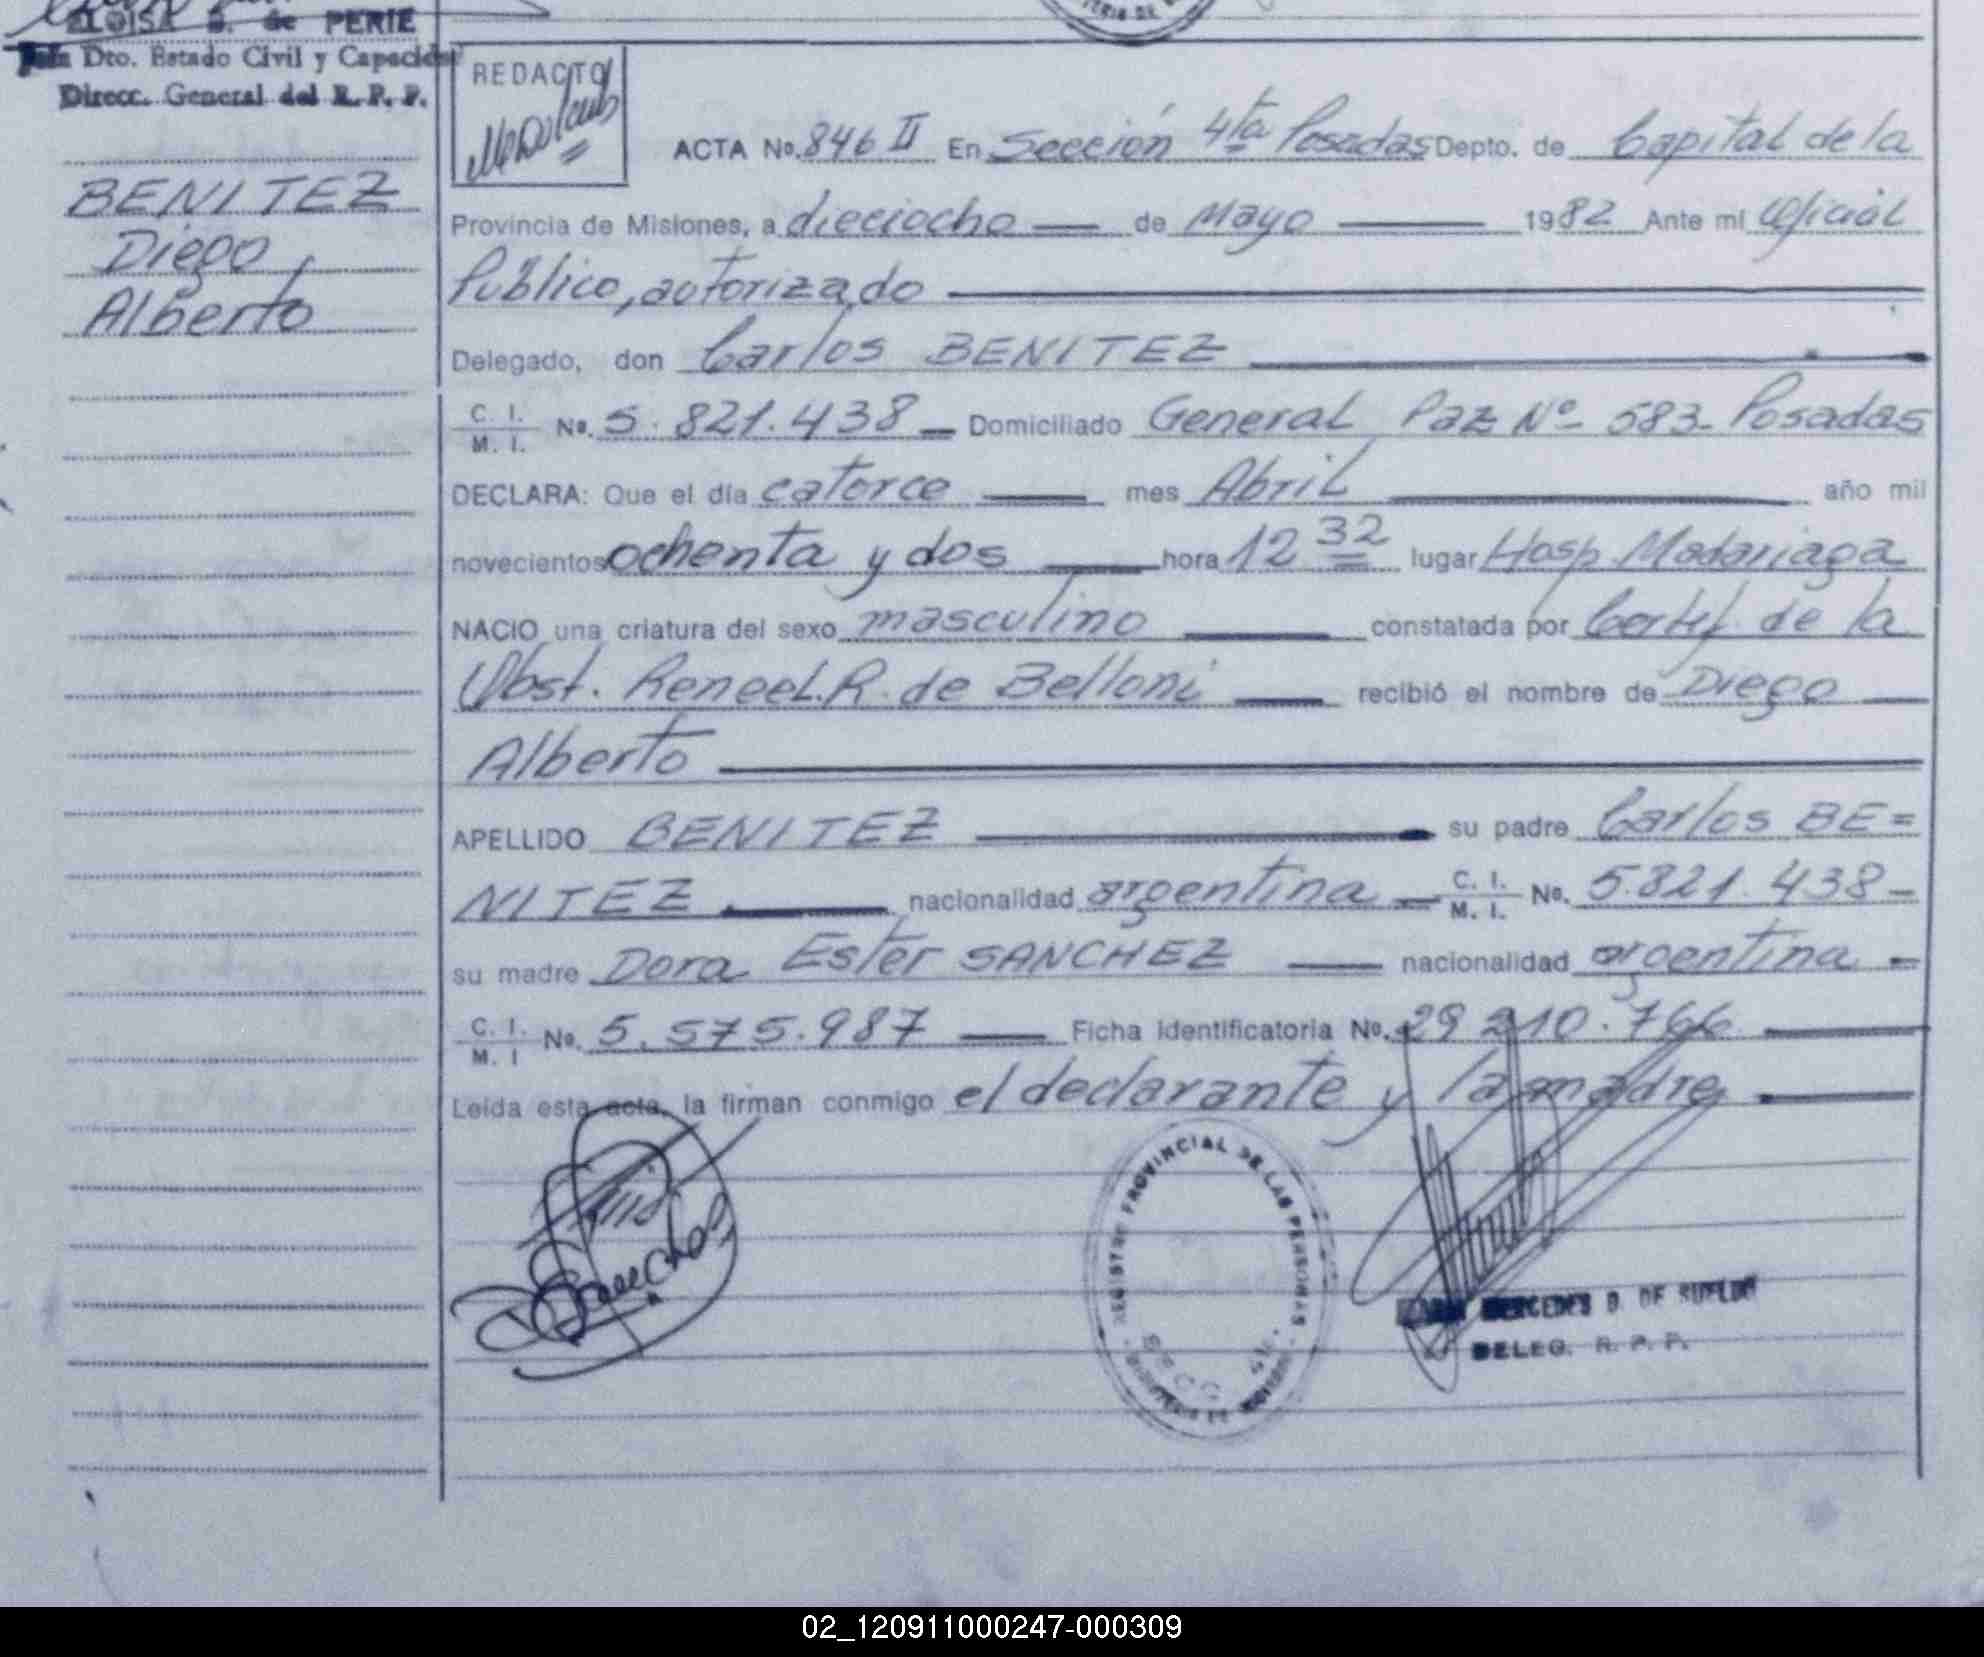 ELOISA B. de PERIE
Jefa Dto. Estado Civil y Capacidad
Direcc. General del R. P. P.
BENITEZ
Diego
Alberto
REDACTO
ACTA No. 846 II En Sección 4ta Posadas Depto. de Capital de la
Provincia de Misiones, a dieciocho de Mayo 1982 Ante mi Oficial
Público, autorizado
Delegado, don Carlos BENITEZ
C. I. / M. I. No. 5.821.438 Domiciliado General Paz Nº 583 Posadas
DECLARA: Que el día catorce mes Abril año mil
novecientos ochenta y dos hora 12 32 lugar Hosp. Madariaga
NACIO una criatura del sexo masculino constatada por Certif. de la
Obst. Renee L.R. de Belloni recibió el nombre de Diego
Alberto
APELLIDO BENITEZ su padre Carlos BE=
NITEZ nacionalidad argentina C. I. / M. I. No. 5.821.438
su madre Dora Ester SANCHEZ nacionalidad argentina
C. I. / M. I No. 5.575.987 Ficha Identificatoria No. 29.210.766
Leída esta acta, la firman conmigo el declarante y la madre
REGISTRO PROVINCIAL DE LAS PERSONAS
MINISTERIO DE
MERCEDES D. DE SUELDO
DELEG. R. P. P.
02_120911000247-000309